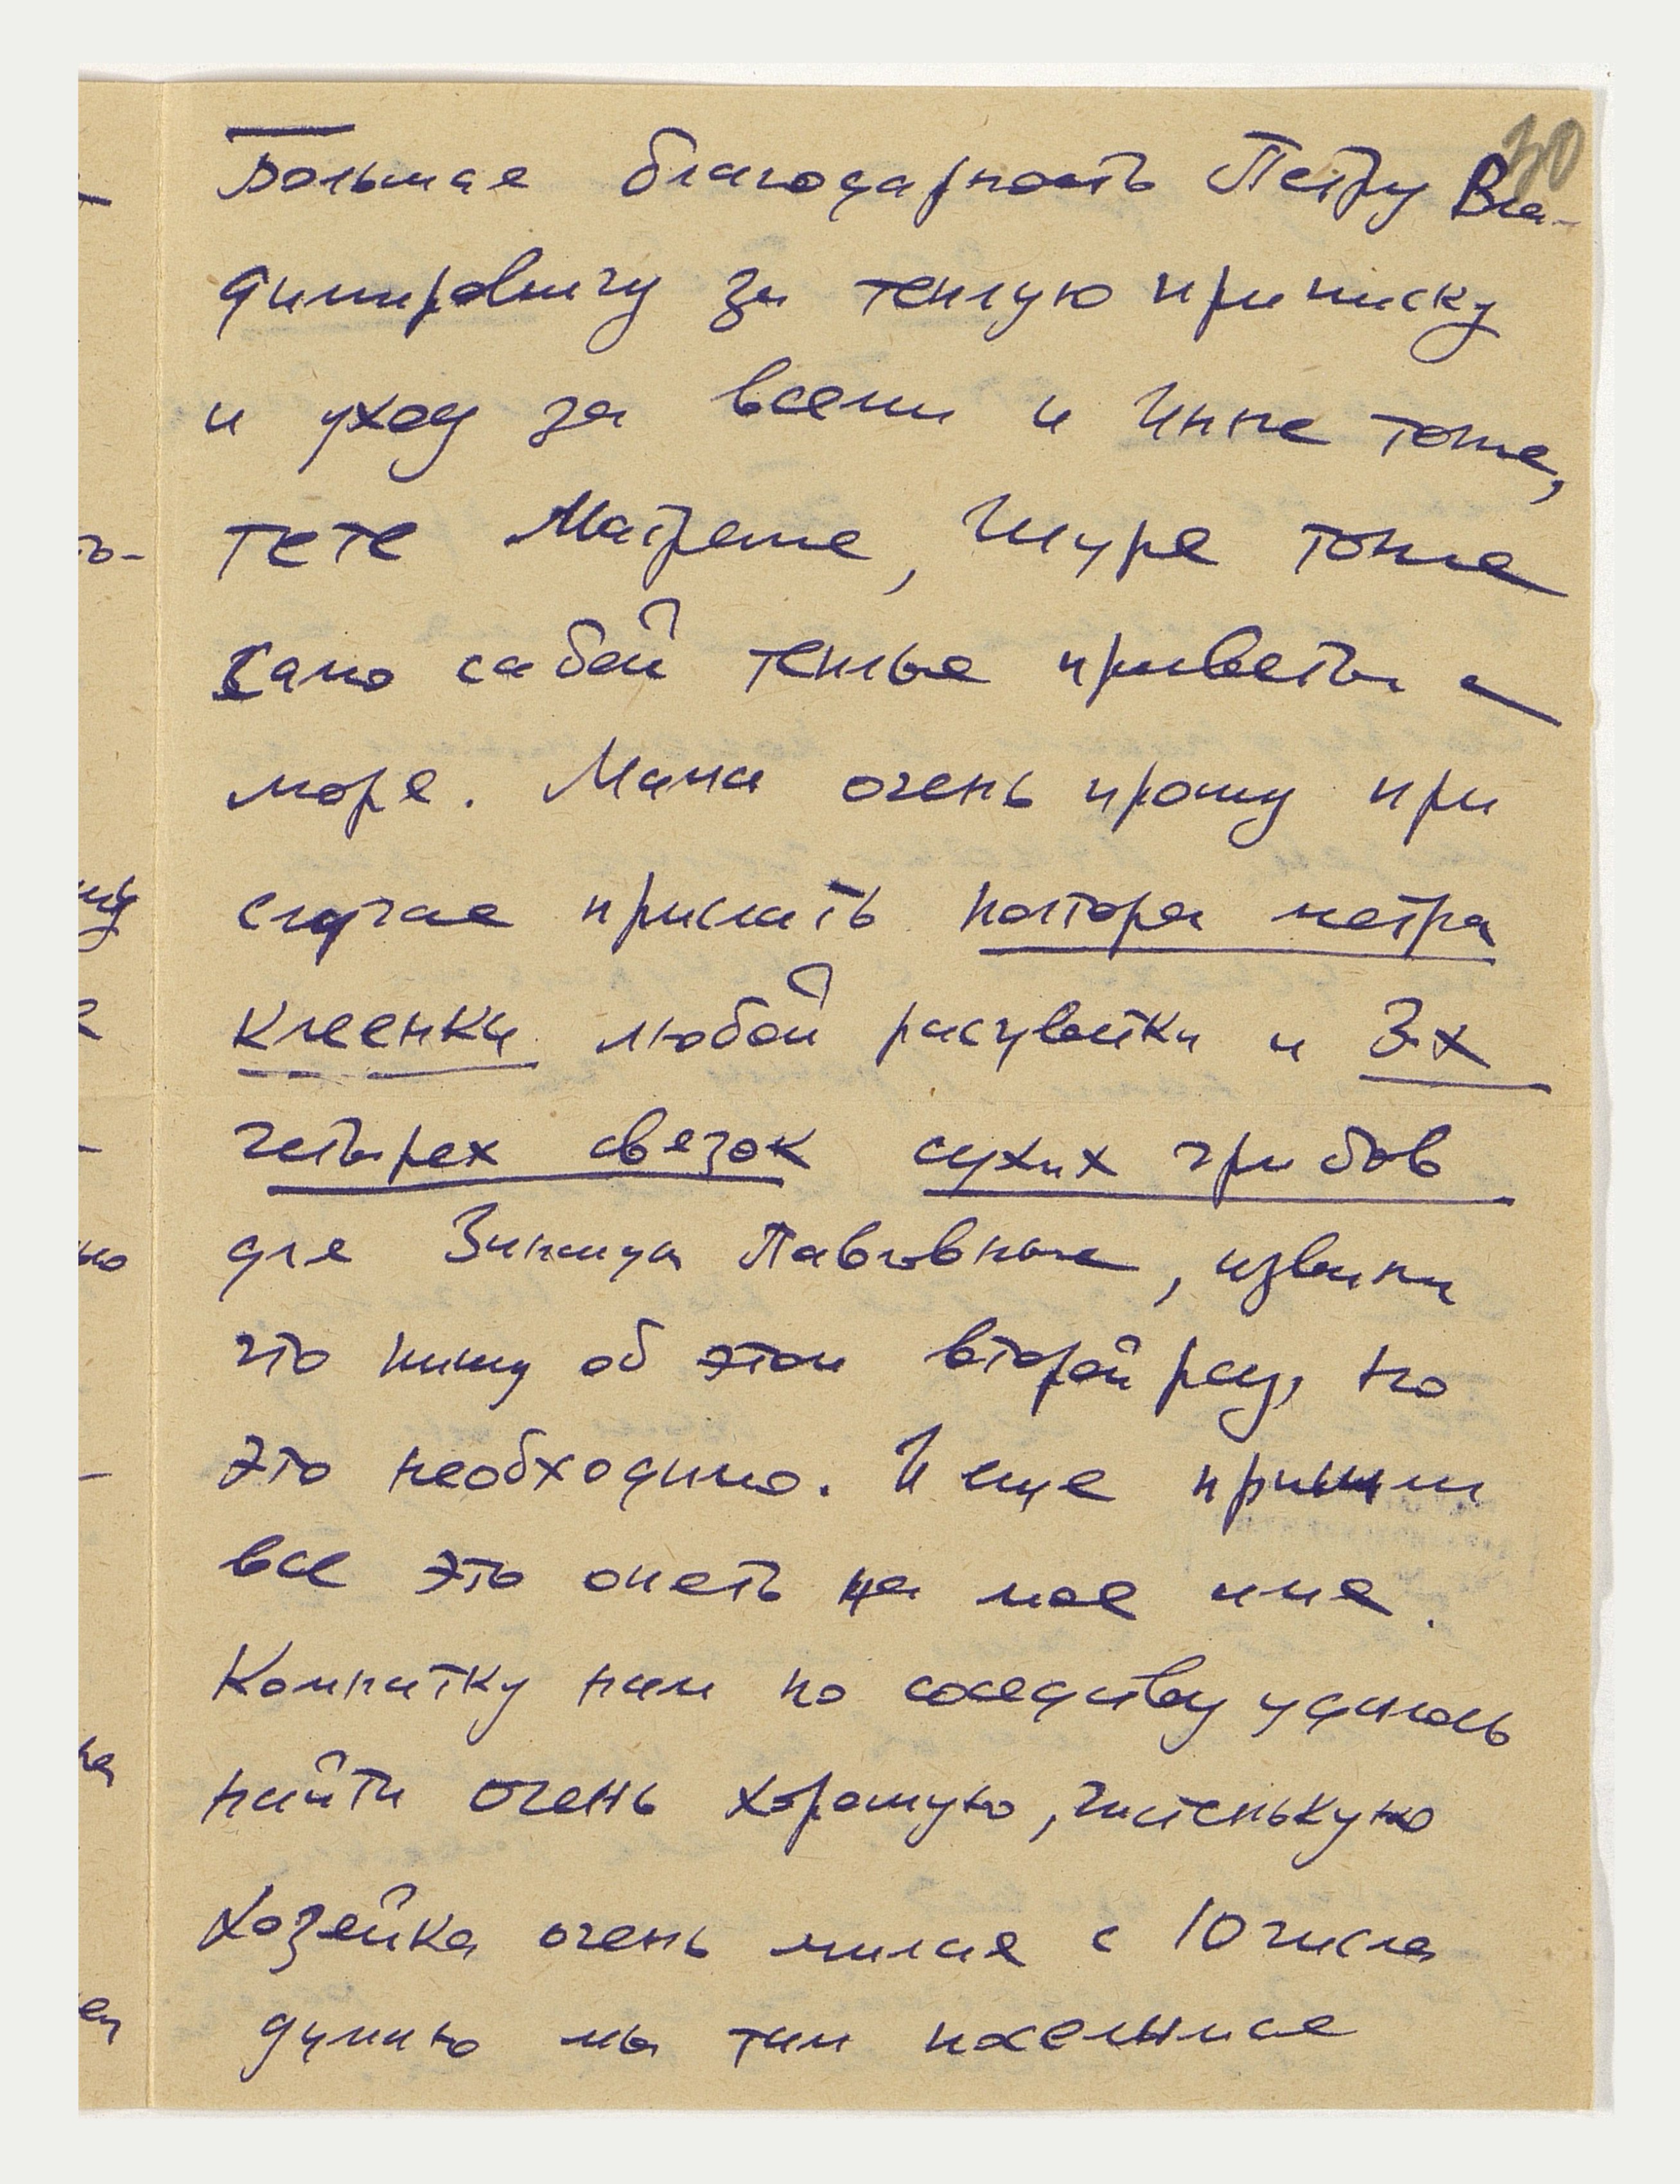 30
Большая благодарность Петру Вла-
димировичу за теплую приписку
и уход за всеми и Инне тоже,
тете Матреше, Шуре тоже
само сабой теплые приветы с
моря. Мама очень прошу при
случае прислать полтора метра
клеенки любой расцветки и 3-х
четырех свезок сухих грибов
для Зинаиды Павловны, извини
что пишу об этом второй раз, но
это необходимо. И еще пришли
все это опеть на мое имя.
Комнатку нам по соседству удалось
найти очень хорошую, чистенькую
Хозейка очень милая с 10 числа
думаю мы там поселимся